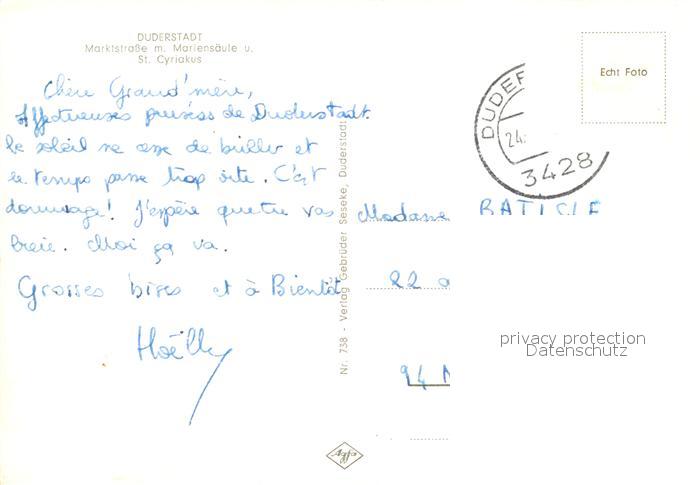 DUDERSTADT
Marktstraße m. Mariensäule u.
St. Cyriakus
Chère Grand'mère,
Affectueuses pensées de Duderstadt.
le soleil ne cesse de briller et
le temps passe trop vite. C'est
dommage! J'espère que tu vas
bien. Moi ça va.
Grosses bises et à Bientôt
Nr. 738 - Verlag Gebrüder Seseke, Duderstadt
Echt Foto
DUDER
24.
3428
Madame
22
94
privacy protection
Datenschutz
Agfa